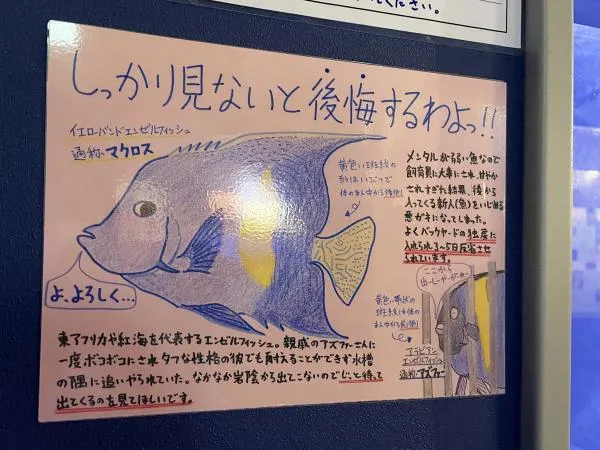 ください。
しっかり見ないと後悔するわよっ!!
イエローバンドエンゼルフィッシュ
通称マクロス
黄色い斑紋の
形はいびつで
体のまん中から後側!
メンタルが弱い魚なので
飼育員に大事にされ、甘やか
されすぎた結果、後から
入ってくる新人(魚)をいじめる
悪ガキになってしまった。
よくバックヤードの独房に
入れられ3~5日反省させ
られています。
よ、よろしく…
ここから
出ーしーやーがれー
黄色い帯状の
斑紋は体の
まん中から前側!
アラビアン
エンゼルフィッシュ
通称アズファー
東アフリカや紅海を代表するエンゼルフィッシュ。親戚のアズファーさんに
一度ボコボコにされタフな性格の彼でも耐えることができず水槽
の隅に追いやられていた。なかなか岩陰から出てこないのでじっと待って
出てくるのを見てほしいです。